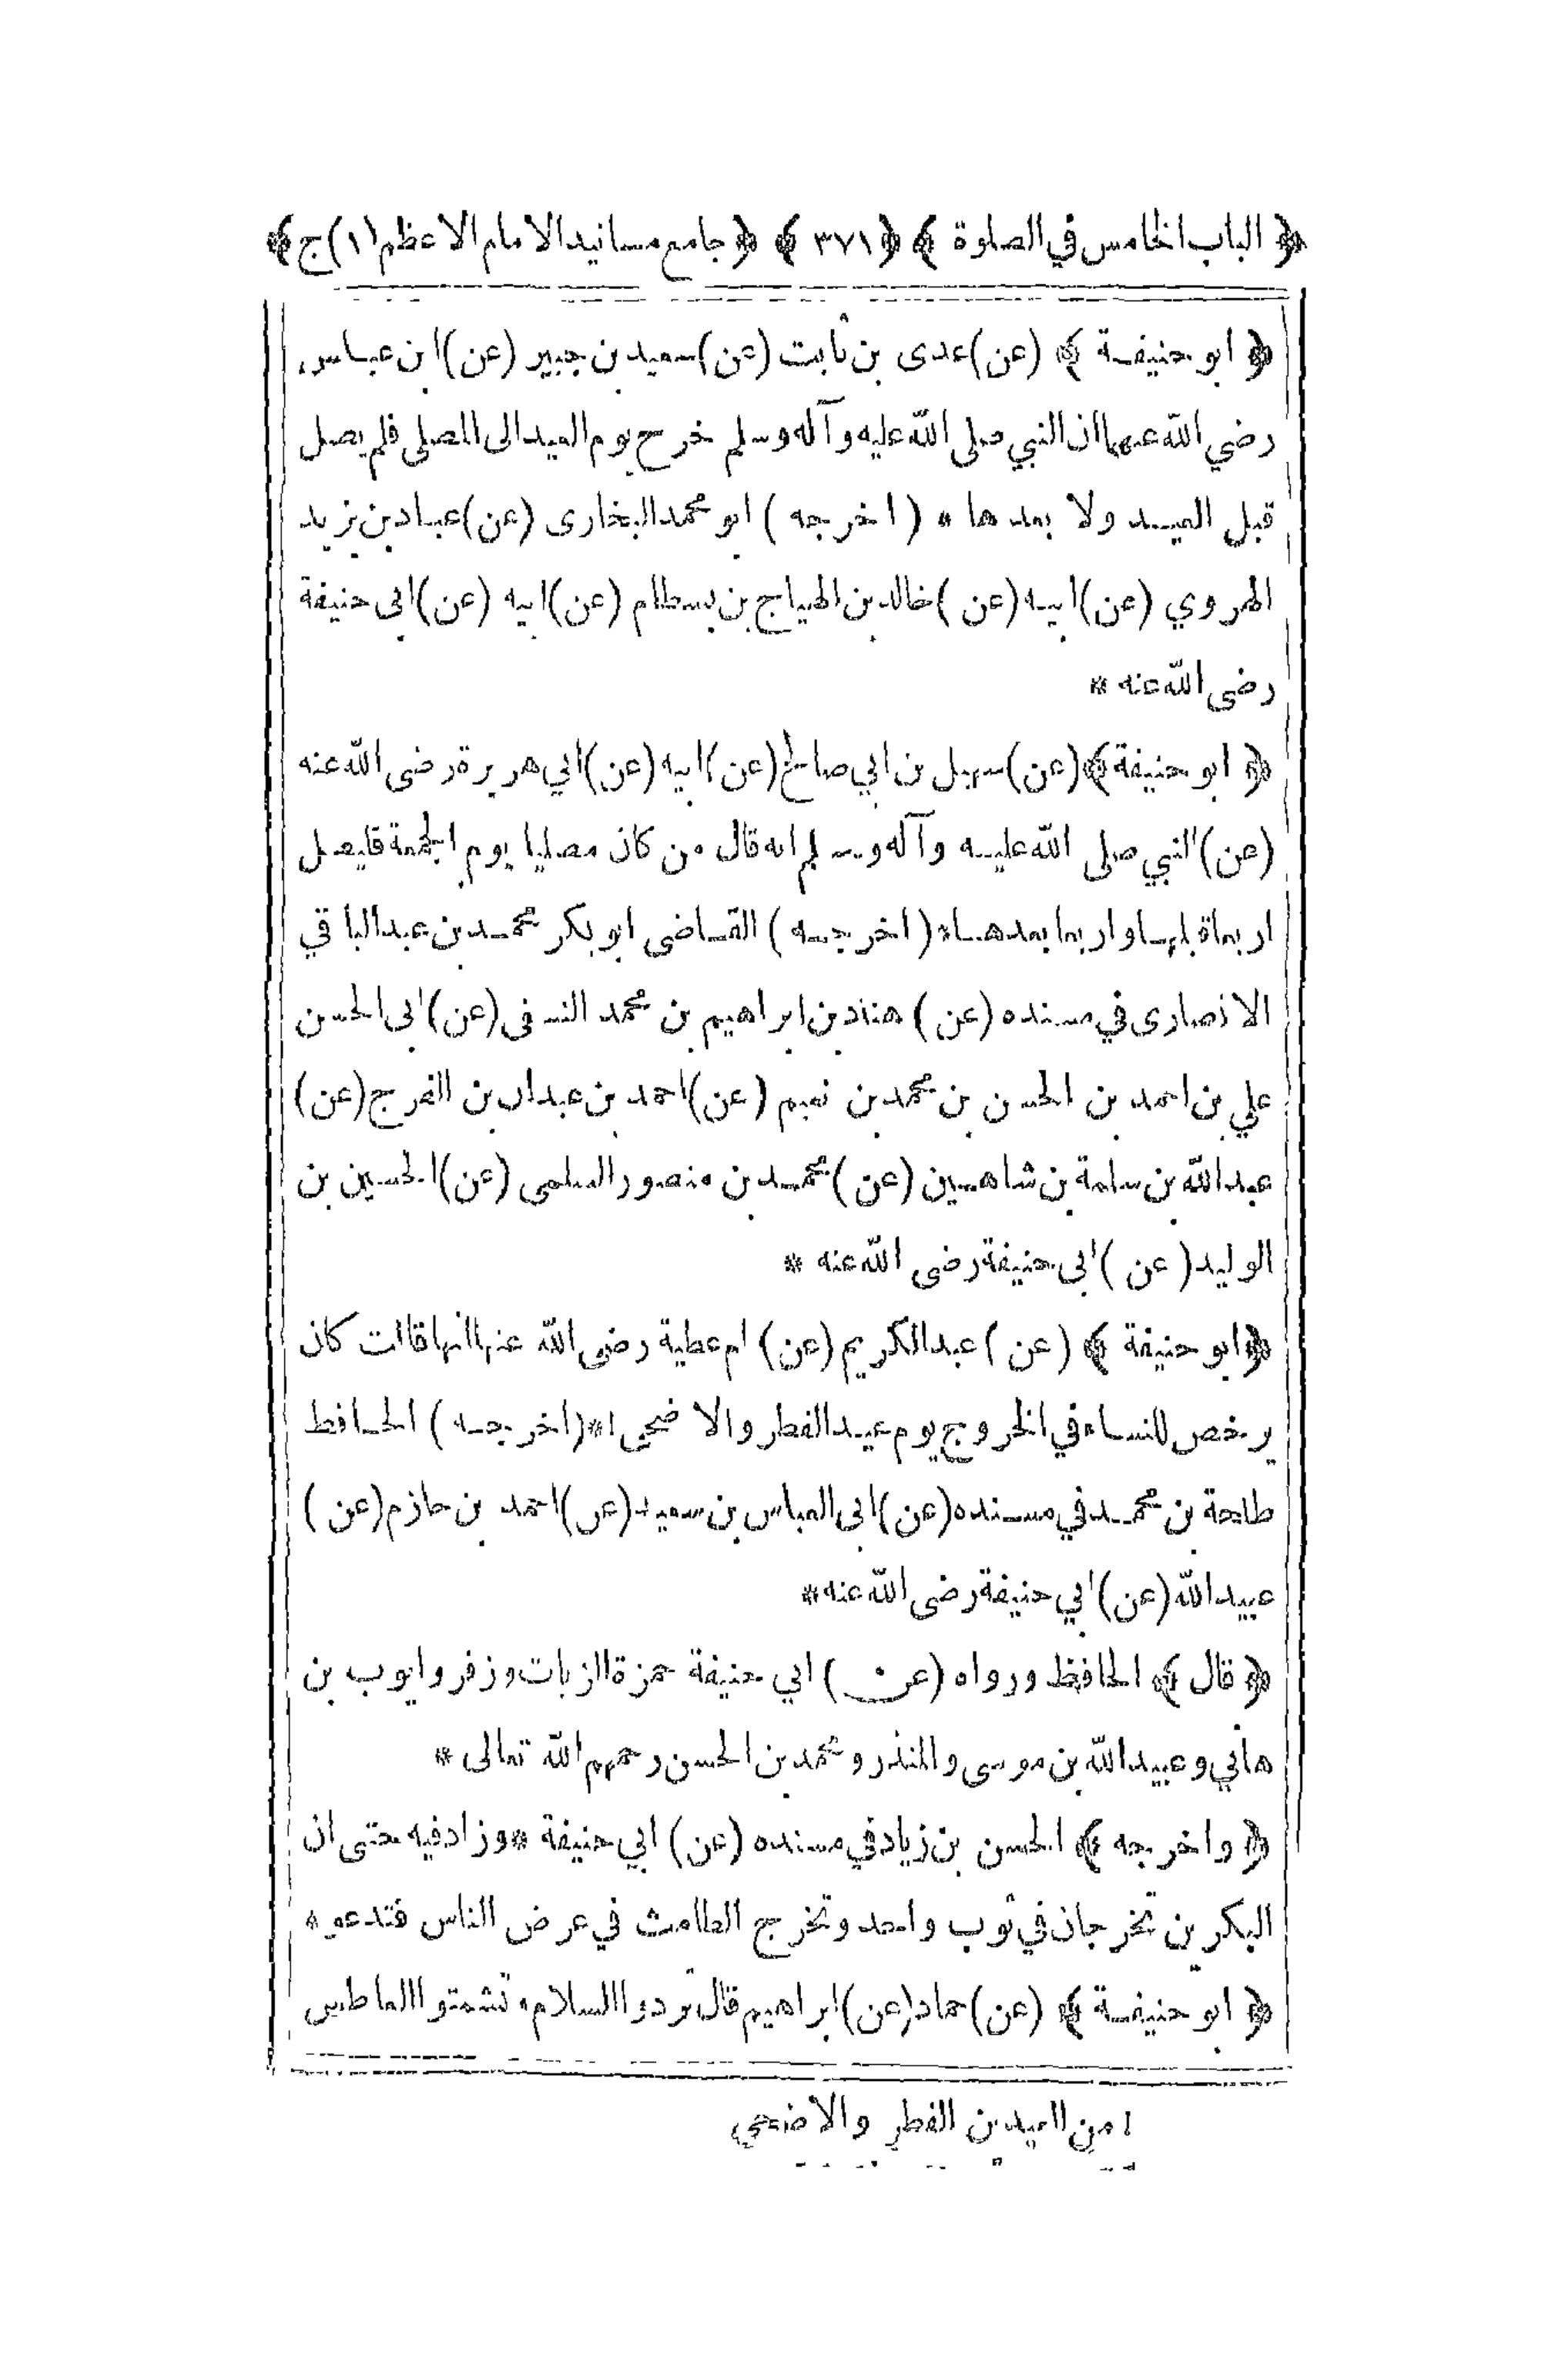 ﴿ الباب الخامس في الصلوة ﴾ ﴿ ٣٧١ ﴾ ﴿ جامع مسانيد الامام الاعظم (١) ج ﴾
﴿ ابو حنيفة ﴾ (عن) عدى بن ثابت (عن) سعيد بن جبير (عن) ابن عباس
رضي الله عنهما ان النبي صلى الله عليه وآله وسلم خرج يوم العيد الى المصلى فلم يصل
قبل العيد ولا بعدها * ( اخرجه ) ابو محمد البخارى (عن) عباد بن زيد
الهروي (عن) ابيه (عن) خالد بن الهياج بن بسطام (عن) ابيه (عن) ابى حنيفة
رضى الله عنه *
﴿ ابو حنيفة ﴾ (عن) سهيل بن ابي صالح (عن) ابيه (عن) ابي هريرة رضى الله عنه
(عن) النبي صلى الله عليه وآله وسلم انه قال من كان مصليا يوم الجمعة فليصل
اربعا قبلها واربعا بعدها * ( اخرجه ) القاضى ابو بكر محمد بن عبد الباقي
الانصارى في مسنده (عن) هناد بن ابراهيم بن محمد النسفى (عن) ابى الحسن
علي بن احمد بن الحسن بن محمد بن نعيم (عن) احمد بن عبدان بن الفرج (عن)
عبد الله بن سلمة بن شاهين (عن) محمد بن منصور السلمى (عن) الحسين بن
الوليد (عن) ابى حنيفة رضى الله عنه *
﴿ ابو حنيفة ﴾ (عن) عبد الكريم (عن) ام عطية رضى الله عنها انها قالت كان
يرخص للنساء في الخروج يوم عيد الفطر والاضحى ١ * ( اخرجه ) الحافظ
طلحة بن محمد في مسنده (عن) ابى العباس بن سعيد (عن) احمد بن حازم (عن)
عبيد الله (عن) ابي حنيفة رضى الله عنه *
﴿ قال ﴾ الحافظ ورواه (عن) ابي حنيفة حمزة الزيات وزفر وايوب بن
هانى وعبيد الله بن موسى والمنذر ومحمد بن الحسن رحمهم الله تعالى *
﴿ واخرجه ﴾ الحسن بن زياد في مسنده (عن) ابي حنيفة * وزاد فيه حتى ان
البكرين تخرجان في ثوب واحد وتخرج الطامث في عرض الناس فتدعو *
﴿ ابو حنيفة ﴾ (عن) حماد (عن) ابراهيم قال تردوا السلام وتشمتوا العاطس
١ من العيدين الفطر والاضحي